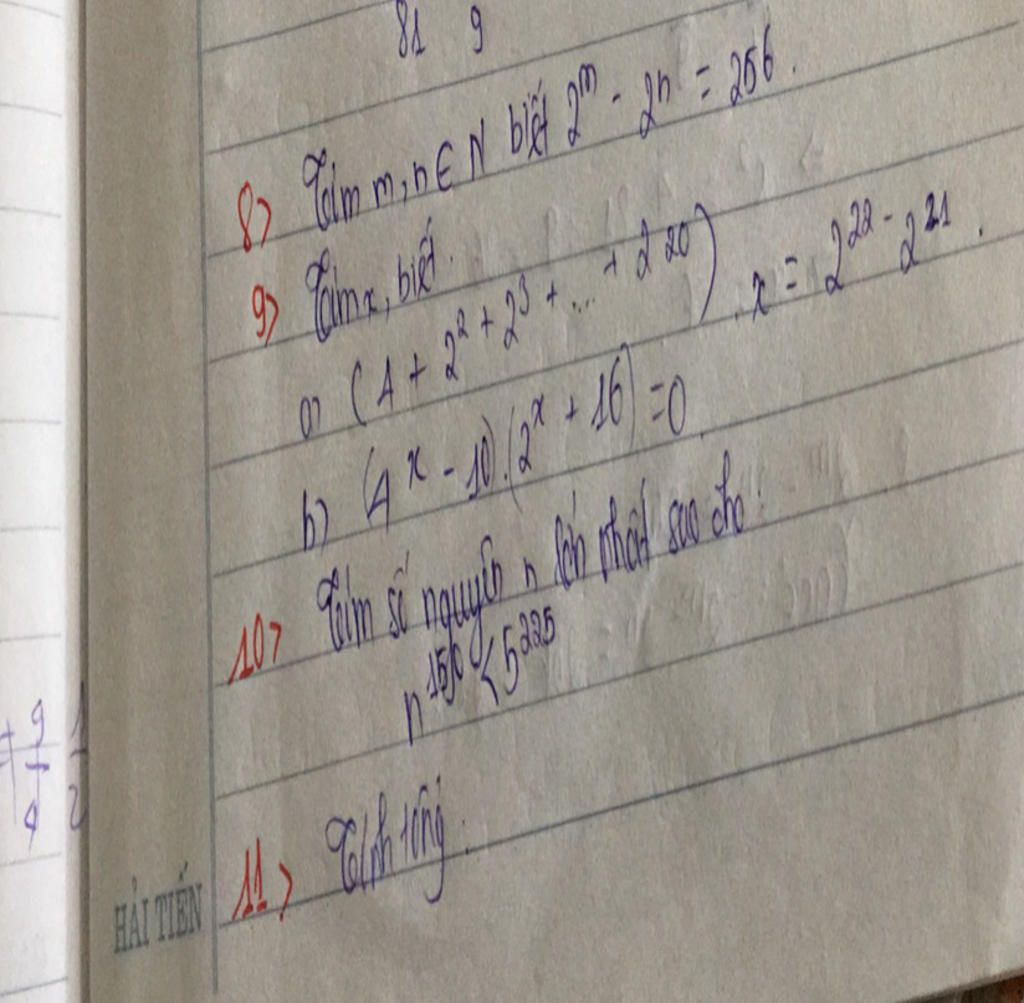 81 9
8) Tìm m, n ∈ N biết 2^m - 2^n = 256.
9) Tìm x, biết.
a) (4 + 2^2 + 2^3 + ... + 2^20) . x = 2^22 - 2^21.
b) (4^x - 10).(2^x + 16) = 0
10) Tìm số nguyên n lớn nhất sao cho:
n^150 < 5^225
11) Tính tổng.
+ 9/4 1/2
HẢI TIẾN